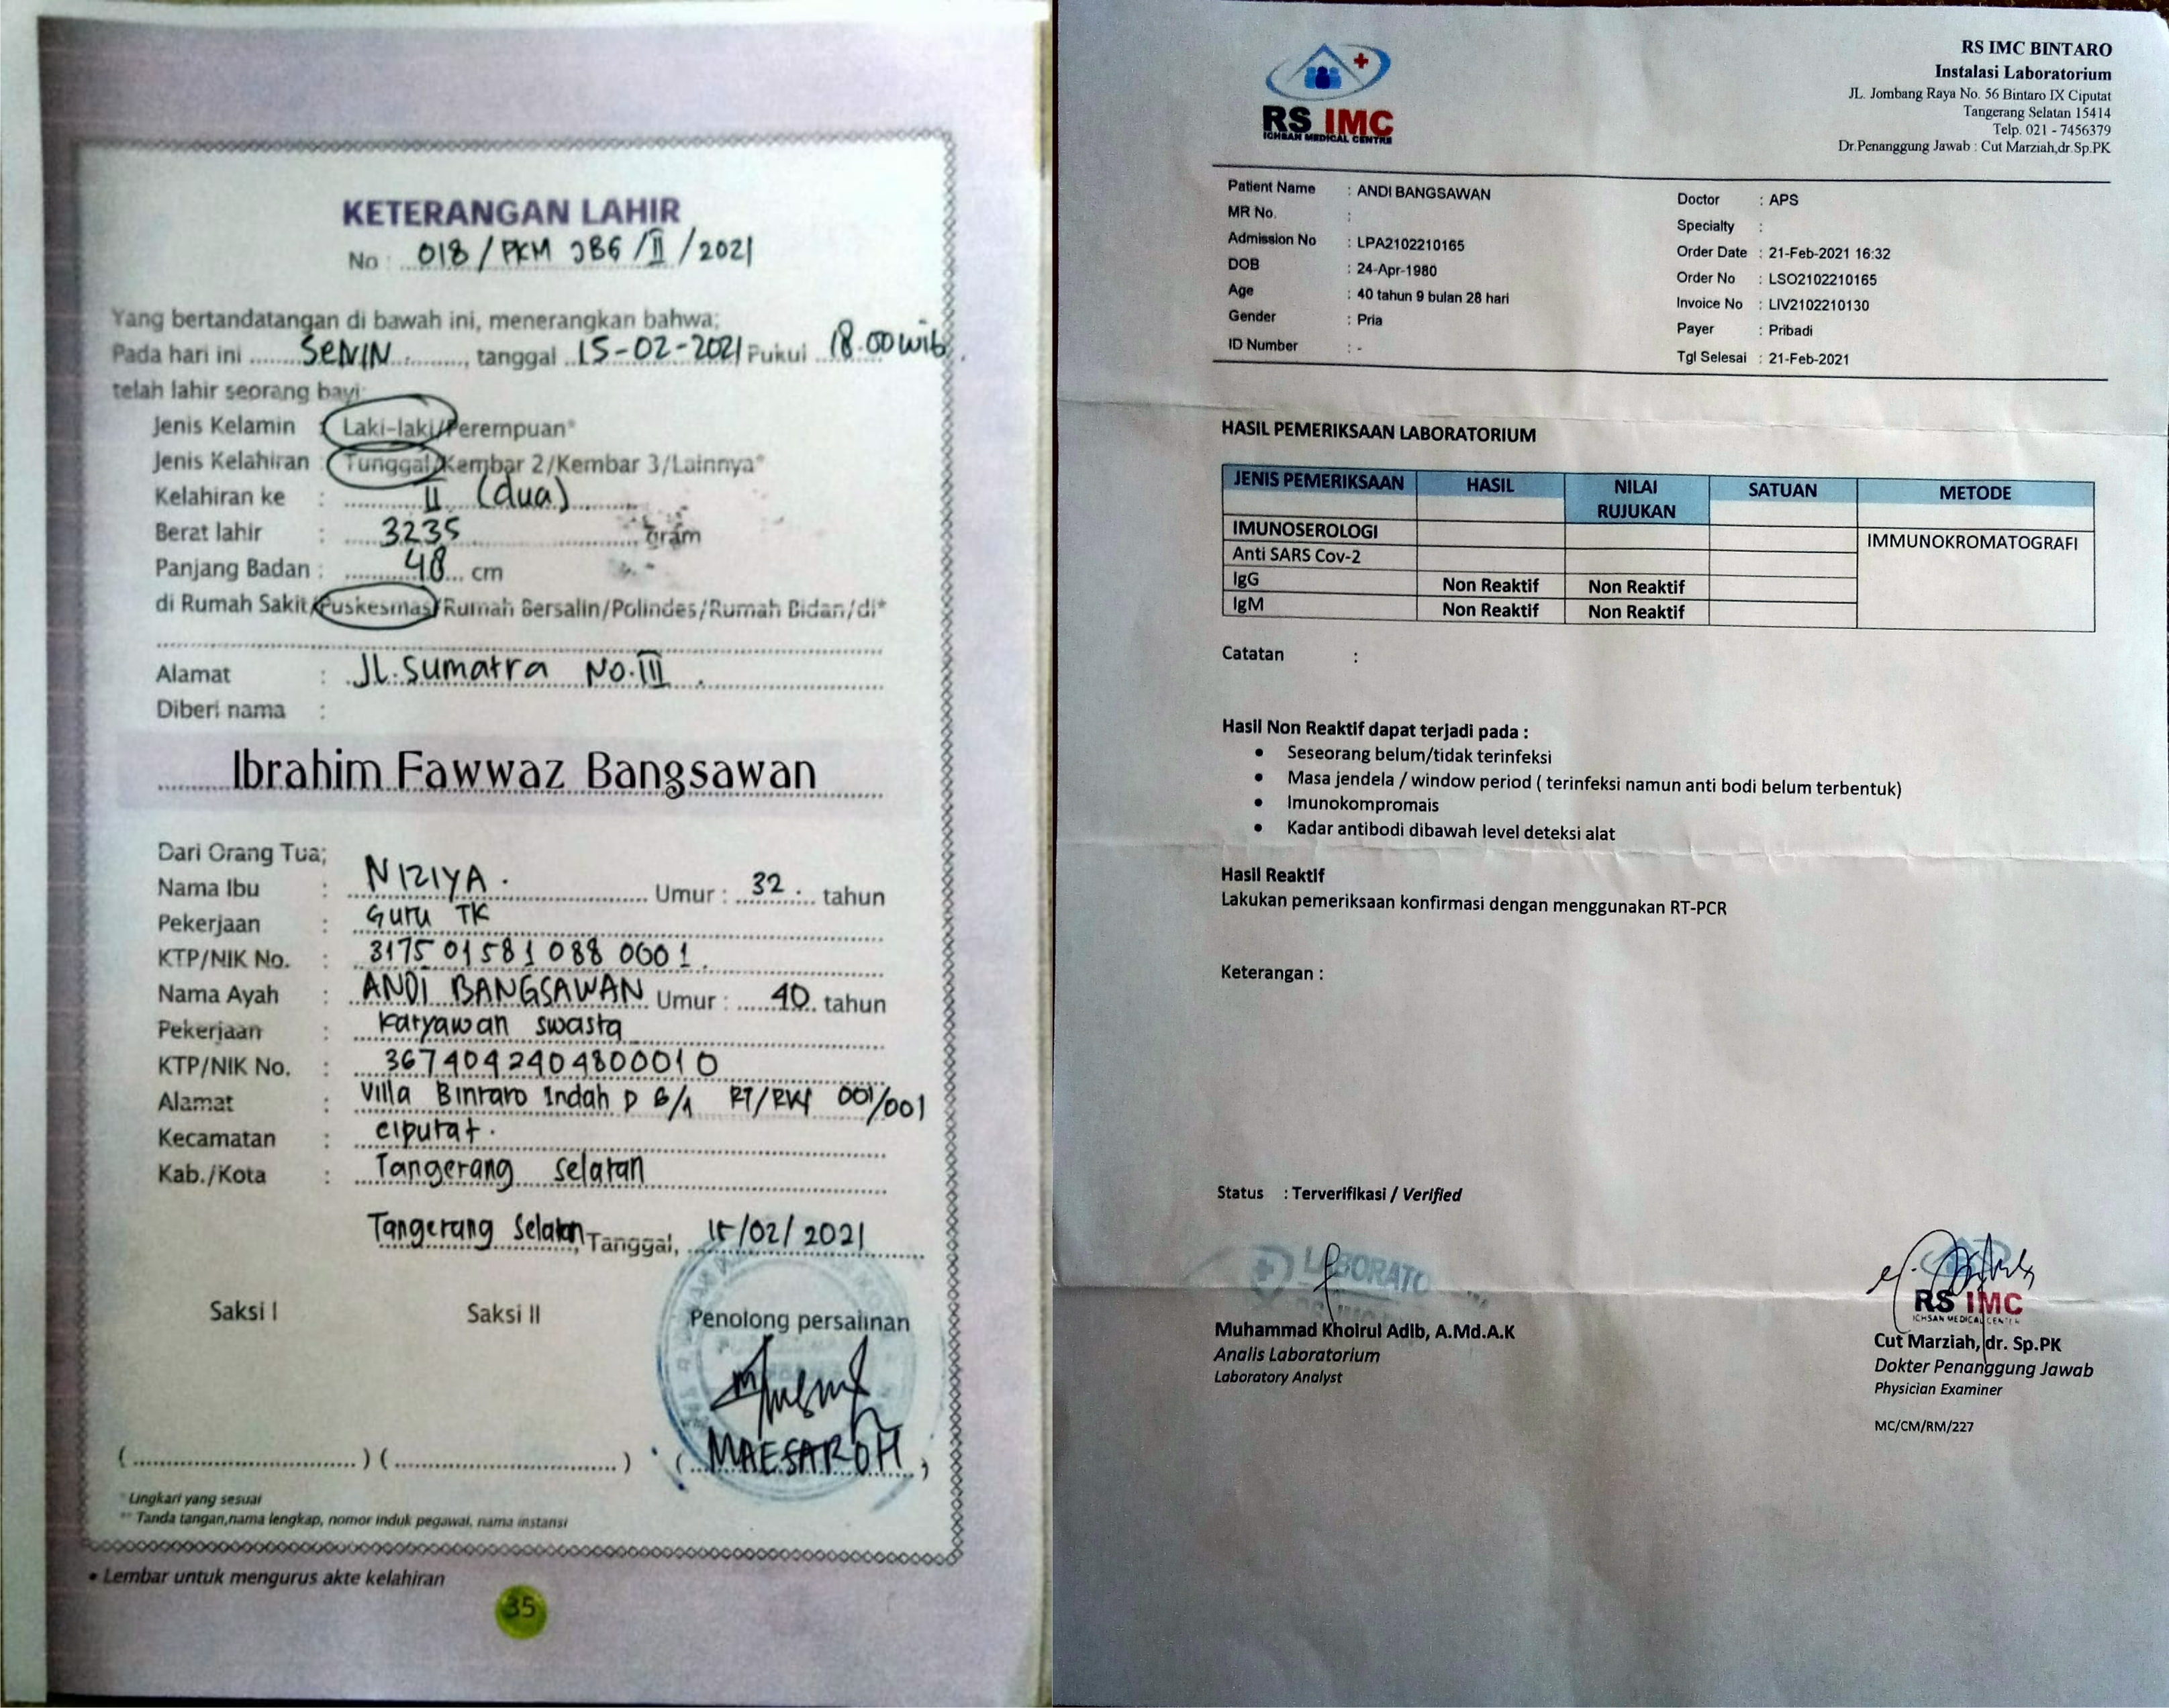 KETERANGAN LAHIR
No : 018 / PKM JBG / II / 2021
Yang bertandatangan di bawah ini, menerangkan bahwa;
Pada hari ini ....... SENIN ........., tanggal ..15-02-2021 Pukul ..18.00 wib.
telah lahir seorang bayi:
Jenis Kelamin : Laki-laki/Perempuan*
Jenis Kelahiran : Tunggal/Kembar 2/Kembar 3/Lainnya*
Kelahiran ke : II (dua)
Berat lahir : 3235 Gram
Panjang Badan : 48 cm
di Rumah Sakit/Puskesmas/Rumah Bersalin/Polindes/Rumah Bidan/di*
Alamat : Jl. Sumatra No. III
Diberi nama :
Ibrahim Fawwaz Bangsawan
Dari Orang Tua;
Nama Ibu : NIZIYA. Umur : 32 tahun
Pekerjaan : Guru TK
KTP/NIK No. : 3175 01 581 088 0001.
Nama Ayah : ANDI BANGSAWAN Umur : 40 tahun
Pekerjaan : Karyawan swasta
KTP/NIK No. : 3674042404800010
Alamat : Villa Bintaro Indah D 6/1 RT/RW 001/001
Kecamatan : ciputat.
Kab./Kota : Tangerang selatan
Tangerang Selatan, Tanggal, 15/02/2021
Saksi I Saksi II Penolong persalinan
(....................) (....................) (MAESAROH)
* Lingkari yang sesuai
** Tanda tangan,nama lengkap, nomor induk pegawai, nama instansi
• Lembar untuk mengurus akte kelahiran
35
RS IMC
ICHSAN MEDICAL CENTRE
RS IMC BINTARO
Instalasi Laboratorium
JL. Jombang Raya No. 56 Bintaro IX Ciputat
Tangerang Selatan 15414
Telp. 021 - 7456379
Dr.Penanggung Jawab : Cut Marziah,dr.Sp.PK
Patient Name : ANDI BANGSAWAN
MR No. :
Admission No : LPA2102210165
DOB : 24-Apr-1980
Age : 40 tahun 9 bulan 28 hari
Gender : Pria
ID Number : -
Doctor : APS
Specialty :
Order Date : 21-Feb-2021 16:32
Order No : LSO2102210165
Invoice No : LIV2102210130
Payer : Pribadi
Tgl Selesai : 21-Feb-2021
HASIL PEMERIKSAAN LABORATORIUM
JENIS PEMERIKSAAN HASIL NILAI RUJUKAN SATUAN METODE
IMUNOSEROLOGI IMMUNOKROMATOGRAFI
Anti SARS Cov-2
IgG Non Reaktif Non Reaktif
IgM Non Reaktif Non Reaktif
Catatan :
Hasil Non Reaktif dapat terjadi pada :
• Seseorang belum/tidak terinfeksi
• Masa jendela / window period ( terinfeksi namun anti bodi belum terbentuk)
• Imunokompromais
• Kadar antibodi dibawah level deteksi alat
Hasil Reaktif
Lakukan pemeriksaan konfirmasi dengan menggunakan RT-PCR
Keterangan :
Status : Terverifikasi / Verified
LABORATO
RS IMC
ICHSAN MEDICAL CENTER
Muhammad Khoirul Adib, A.Md.A.K
Analis Laboratorium
Laboratory Analyst
Cut Marziah, dr. Sp.PK
Dokter Penanggung Jawab
Physician Examiner
MC/CM/RM/227